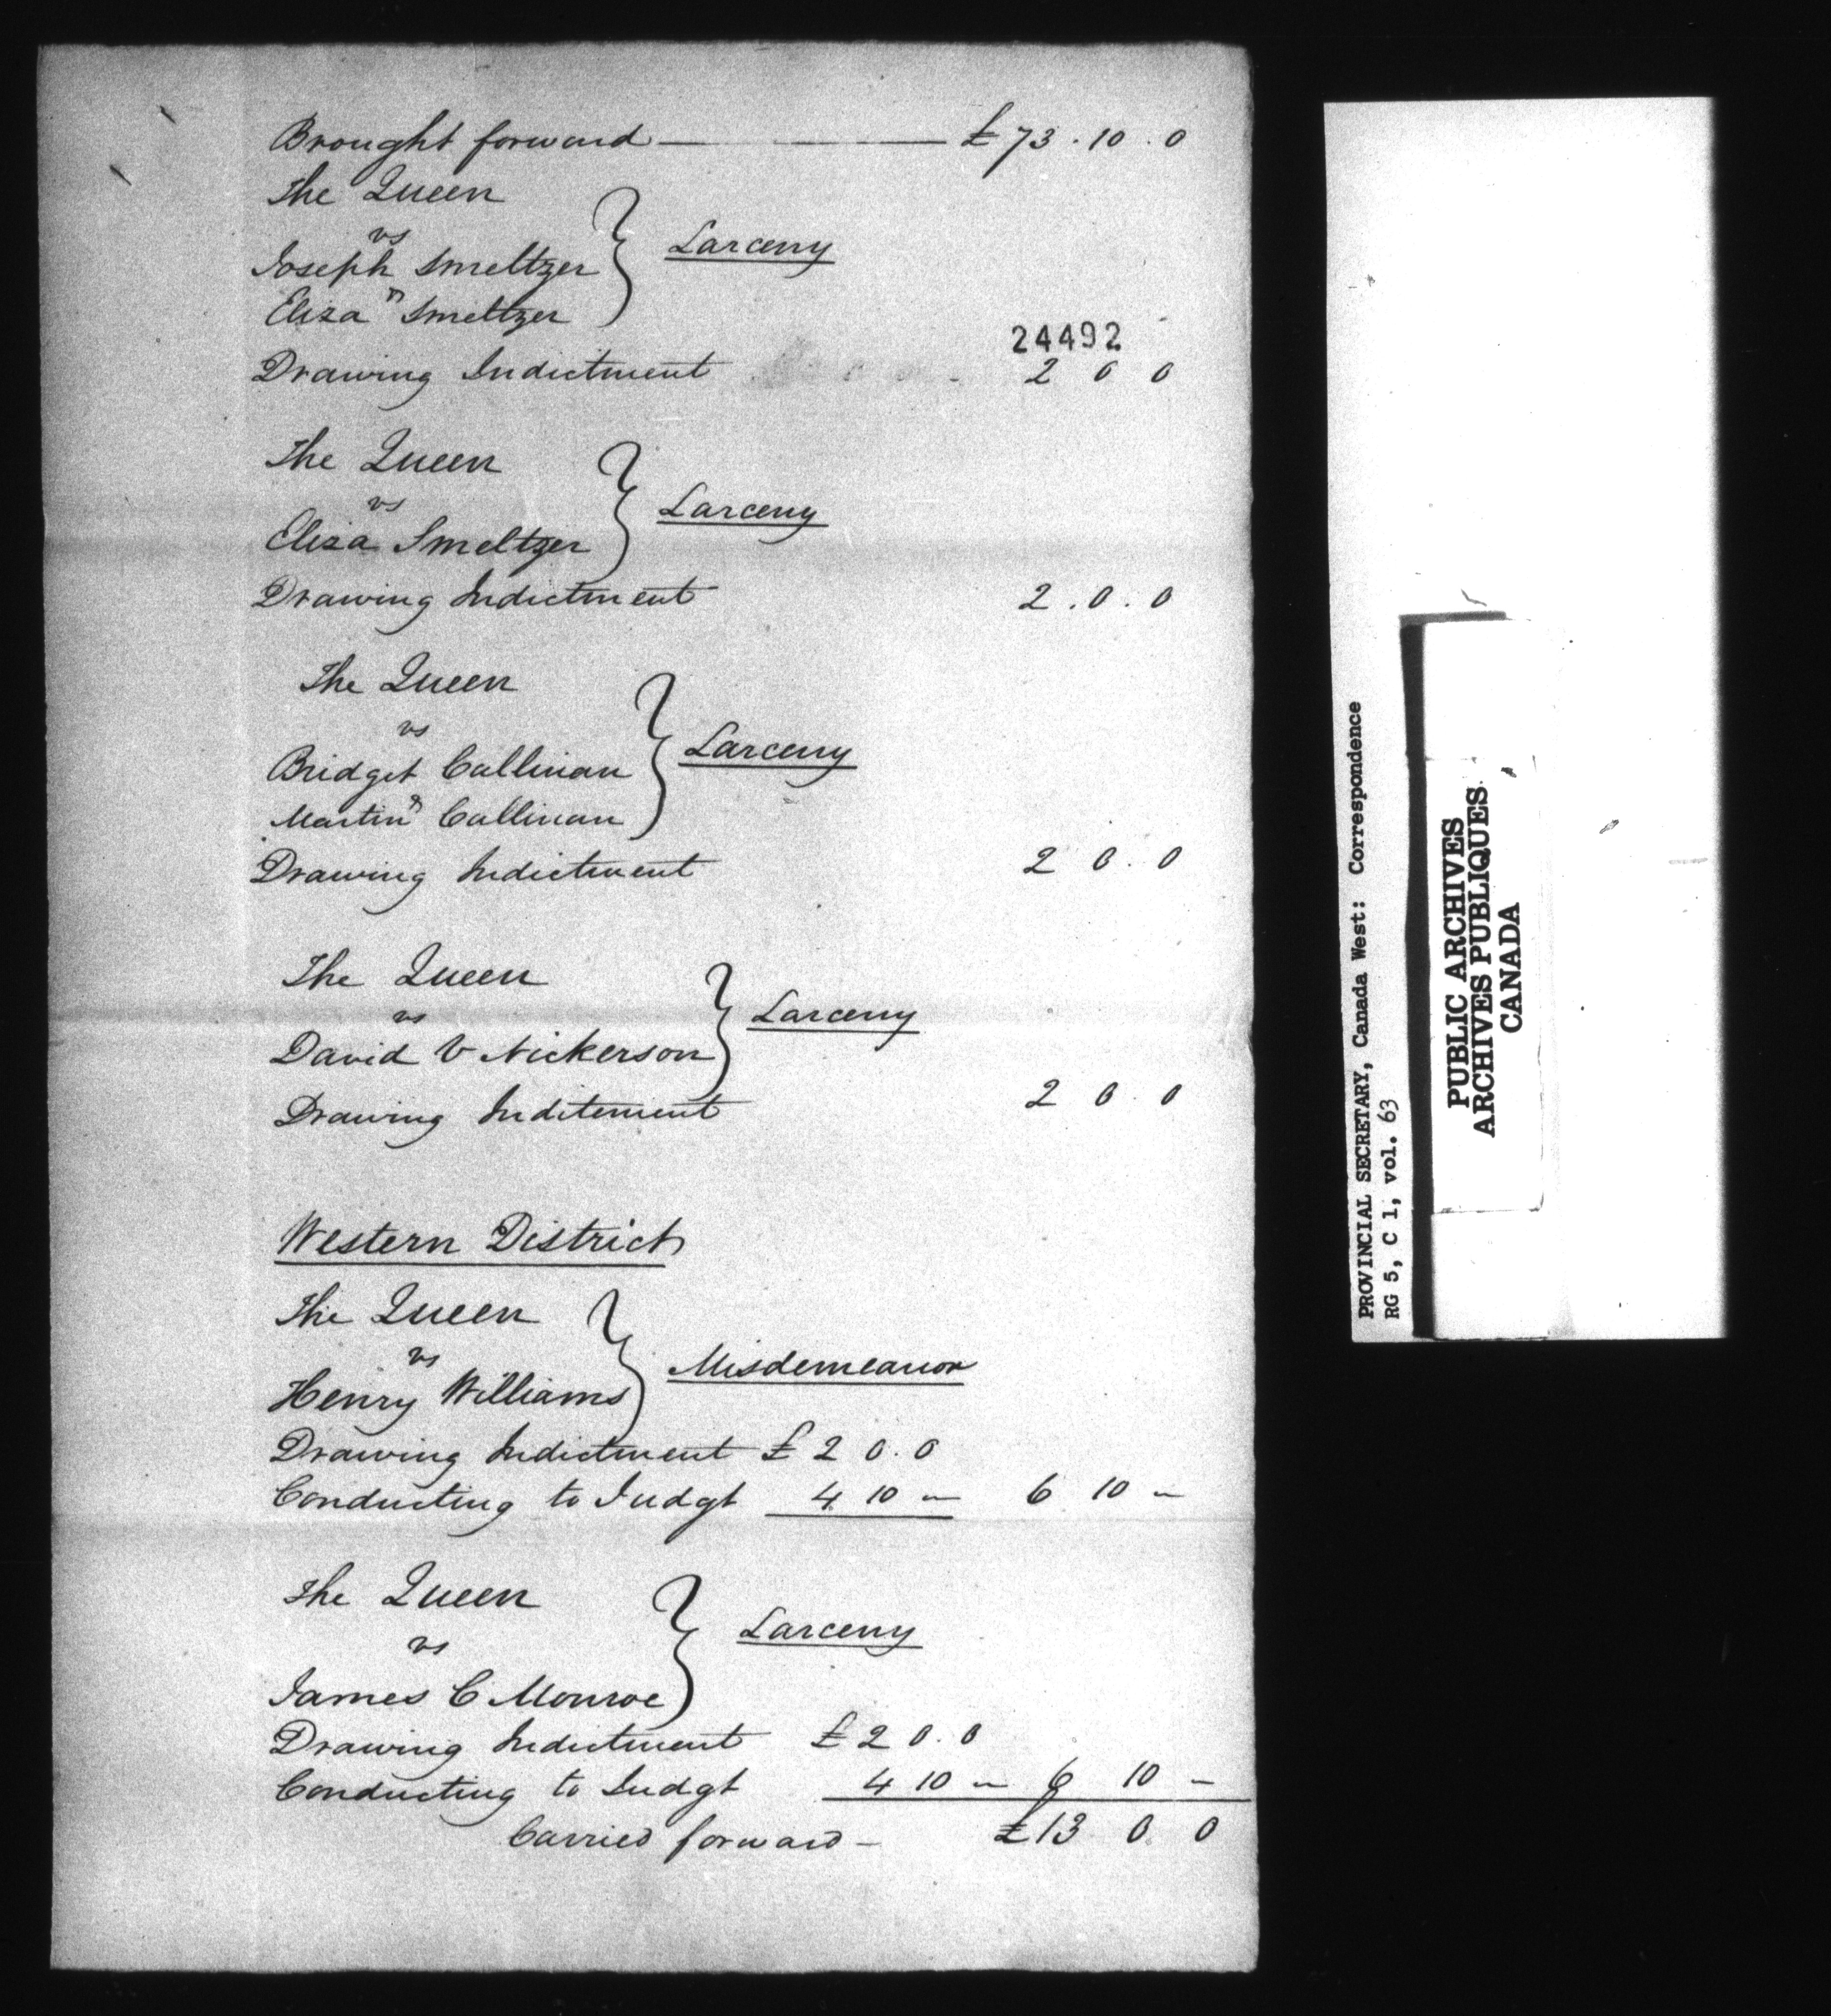 Brought forward — £73.10.0
The Queen
vs
Joseph Smeltzer } Larceny
&
Eliza Smeltzer
24492
Drawing Indictment 2 0 0
The Queen
vs } Larceny
Eliza Smeltzer
Drawing Indictment 2.0.0
The Queen
vs
Bridget Callinan } Larceny
&
Martin Callinan
Drawing Indictment 2 0.0
The Queen
vs } Larceny
David V Nickerson
Drawing Inditement 2 0.0
Western District
The Queen
vs } Misdemeanor
Henry Williams
Drawing Indictment £2 0.0
Conducting to Judgt 4 10 – 6 10 –
The Queen
vs } Larceny
James C Monroe
Drawing Indictment £2 0.0
Conducting to Judgt 4 10 – 6 10 –
Carried forward – £13 0 0
PROVINCIAL SECRETARY, Canada West: Correspondence
RG 5, C 1, vol. 63
PUBLIC ARCHIVES
ARCHIVES PUBLIQUES
CANADA